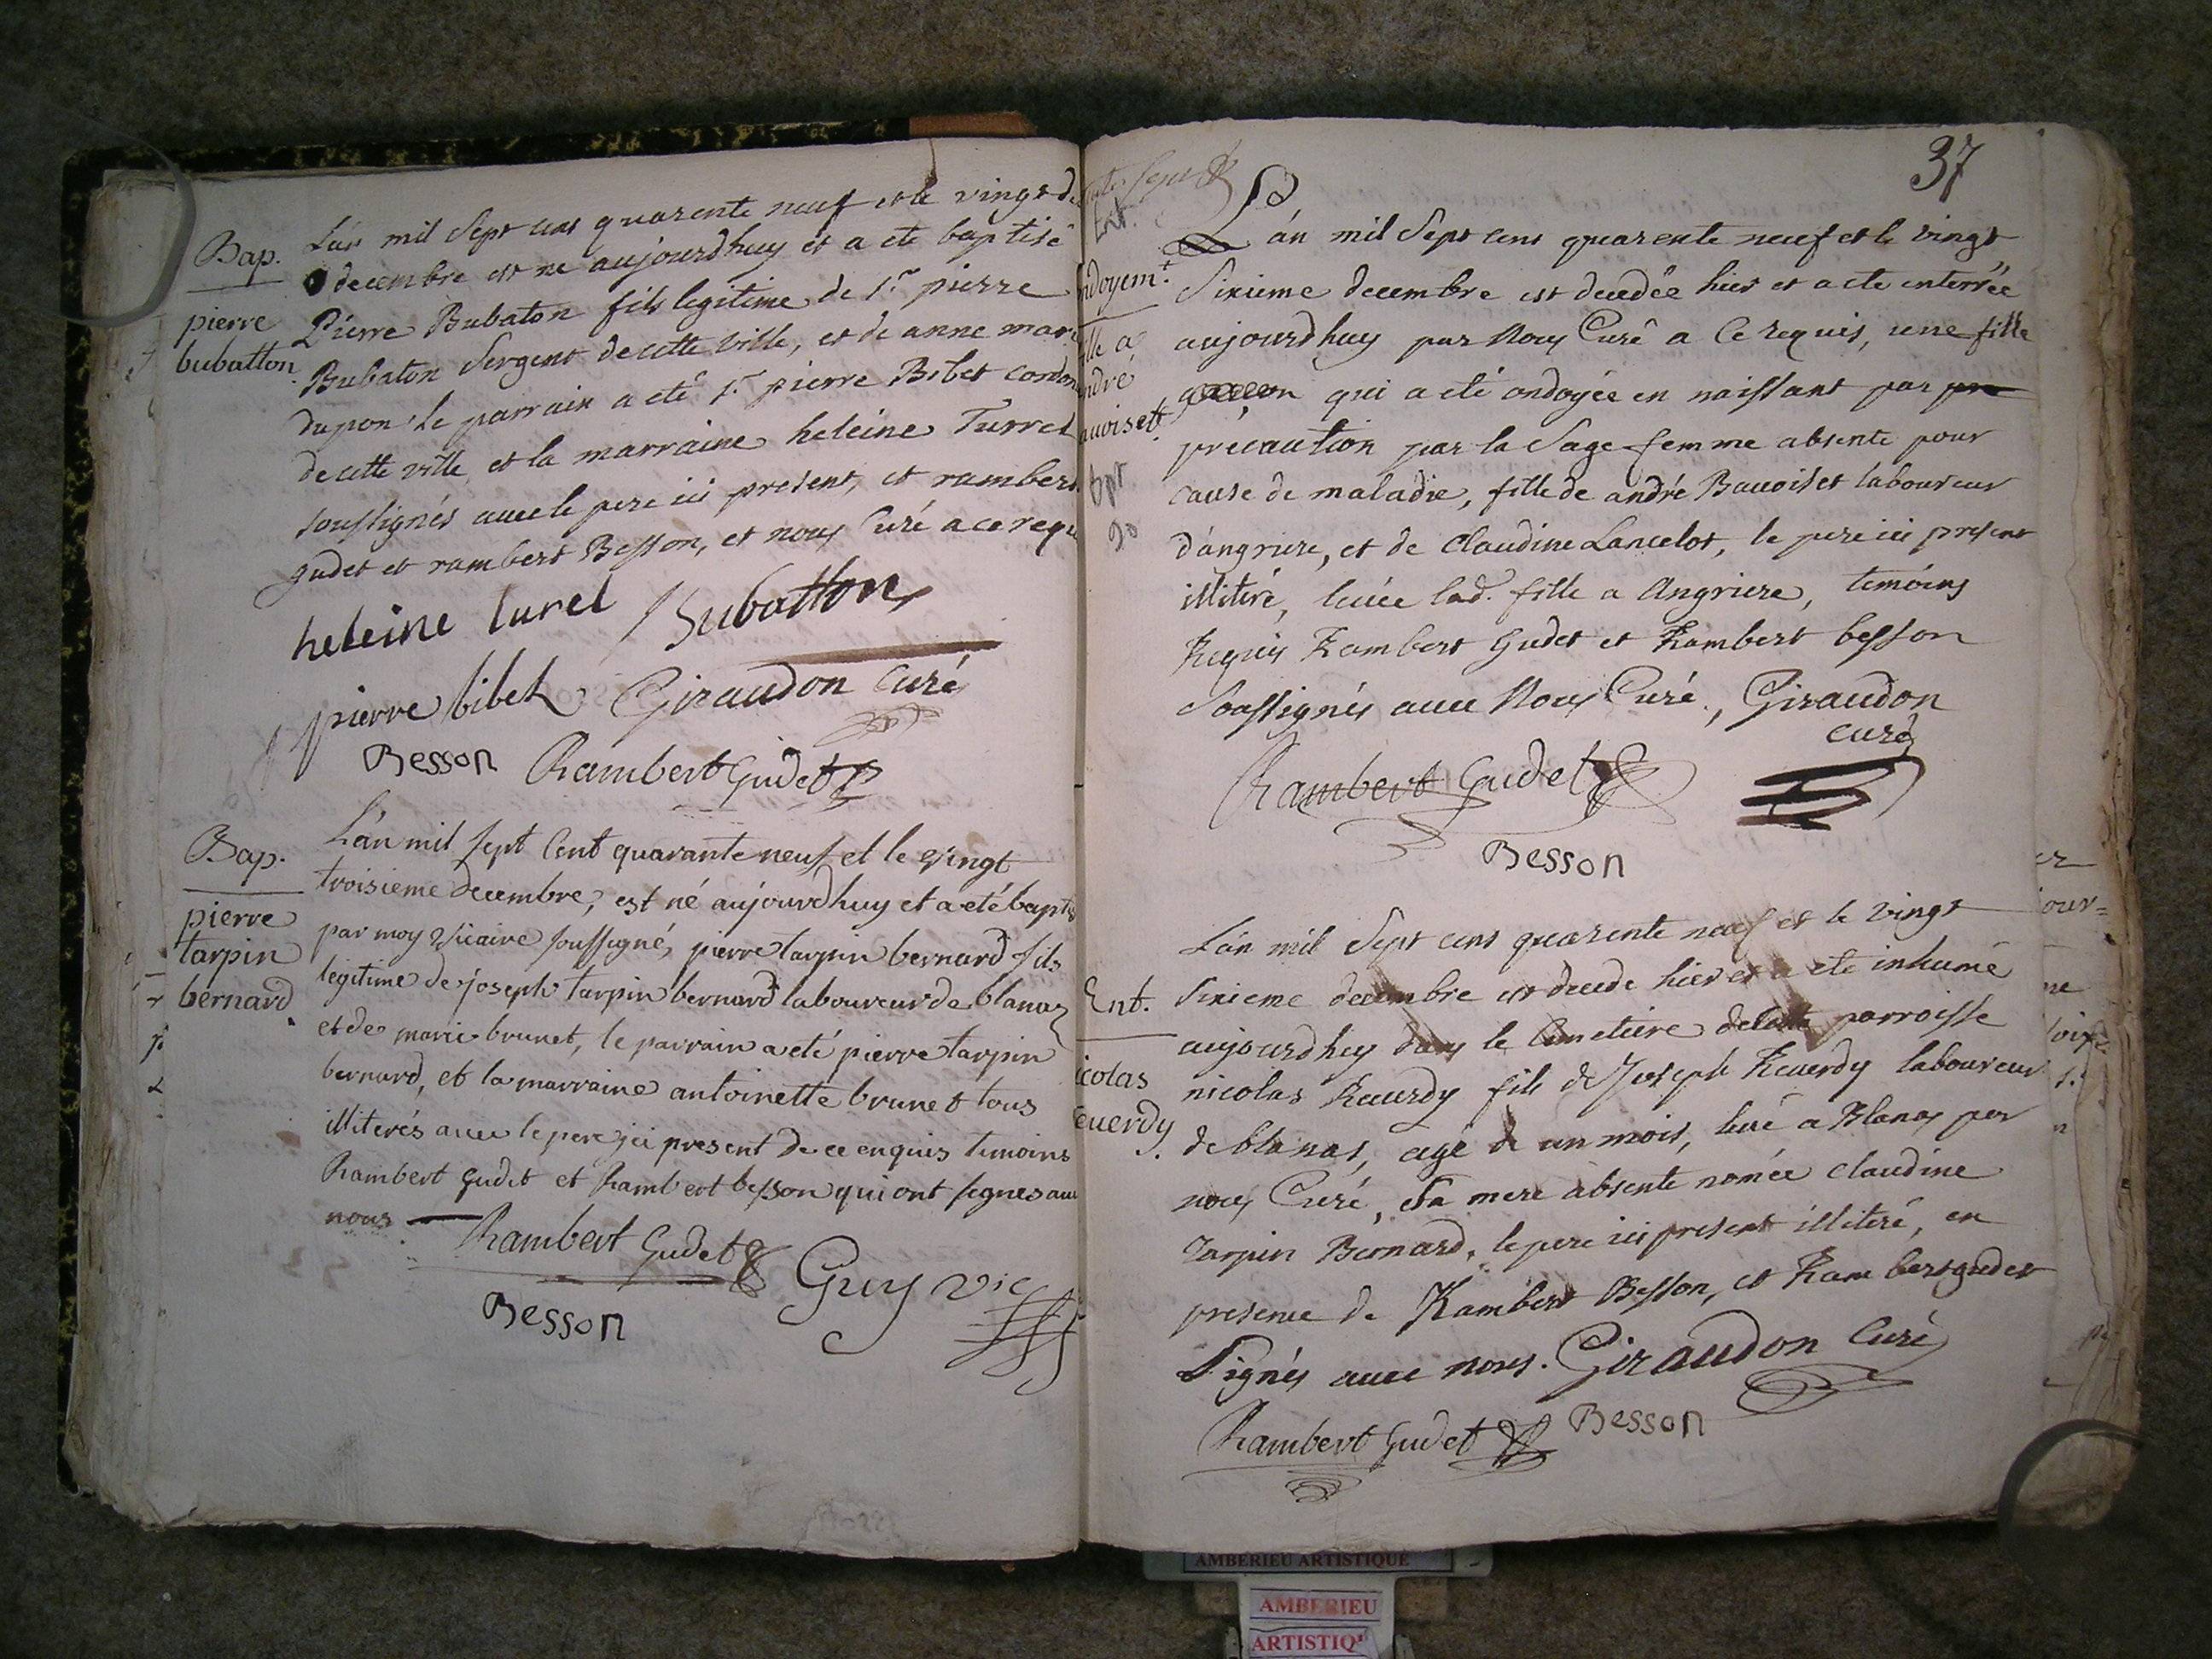 Bap.
pierre
bubatton
L'an mil Sept cens quarente neuf et le vingt
decembre est ne aujourdhuy et a ete baptisé
Pierre Bubaton fils legitime de Sr. pierre
Bubaton Sergent de cette ville, et de anne marie
dupon le parrain a eté Sr. pierre Bibet
de cette ville, et la marraine heleine Turrel
soussignés avec le pere ici present, et rambert
gudet et rambert Besson, et nous Curé a ce requ
heleine turel Bubatton
pierre bibet Giraudon Curé
Besson Rambert Gudet
Bap.
pierre
tarpin
bernard
L'an mil sept Cent quarante neuf et le vingt
troisieme decembre, est né aujourdhuy et a eté bapti
par moy vicaire soussigné, pierre tarpin bernard fils
legitime de joseph tarpin bernard laboureur de blanaz
et de marie brunet, le parrain a eté pierre tarpin
bernard, et la marraine antoinette brunet tous
illiterés avec le pere ici present de ce enquis temoins
Rambert gudet et Rambert besson qui ont signes avec
nous
Rambert Gudet Guy vic
Besson
37
Ent.
ndoyemt.
lle a
ndré
auoiset
L'an mil Sept cens quarente neuf et le vingt
Sixieme decembre est decedée hier et a ete enterrée
aujourdhuy par Nous Curé a Ce requis, une fille
qui a eté ondoyée en naissant par
precaution par la Sage femme absente pour
cause de maladie, fille de andré Bauoiset laboureur
d'angriere, et de Claudine Lancelot, le pere ici present
illiteré, leuée lad. fille a Angriere, temoins
Requis Rambert Gudet et Rambert besson
Soussignés auec Nous Curé, Giraudon
curé
Rambert Gudet
Besson
Ent.
icolas
euerdy
L'an mil Sept cens quarente neuf et le vingt
Sixieme decembre est decedé hier et a ete inhumé
aujourdhuy dans le Cimetiere de cette parroisse
nicolas Reuerdy fils de Joseph Reuerdy laboureur
de blanas, agé de un mois, leué a Blanas par
nous Curé, Sa mere absente nomée Claudine
Tarpin Bernard, le pere ici present illiteré, en
presence de Rambert Besson, et Rambert gudet
Signés auec nous. Giraudon Curé
Rambert Gudet Besson
AMBERIEU ARTISTIQUE
AMBERIEU
ARTISTIQ